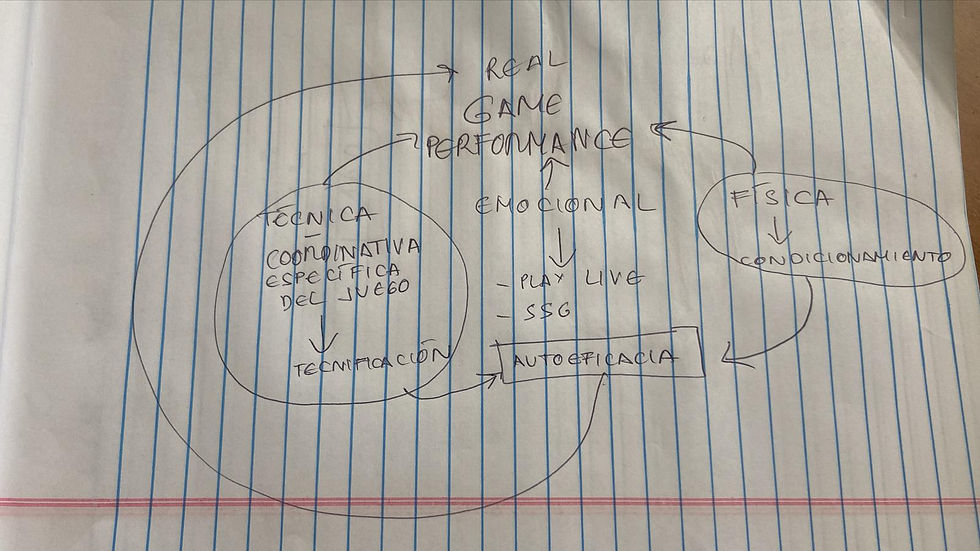 REAL
GAME
PERFORMANCE
TÉCNICA
COORDINATIVA
ESPECÍFICA
DEL JUEGO
TECNIFICACIÓN
EMOCIONAL
- PLAY LIVE
- SSG
AUTOEFICACIA
FÍSICA
CONDICIONAMIENTO